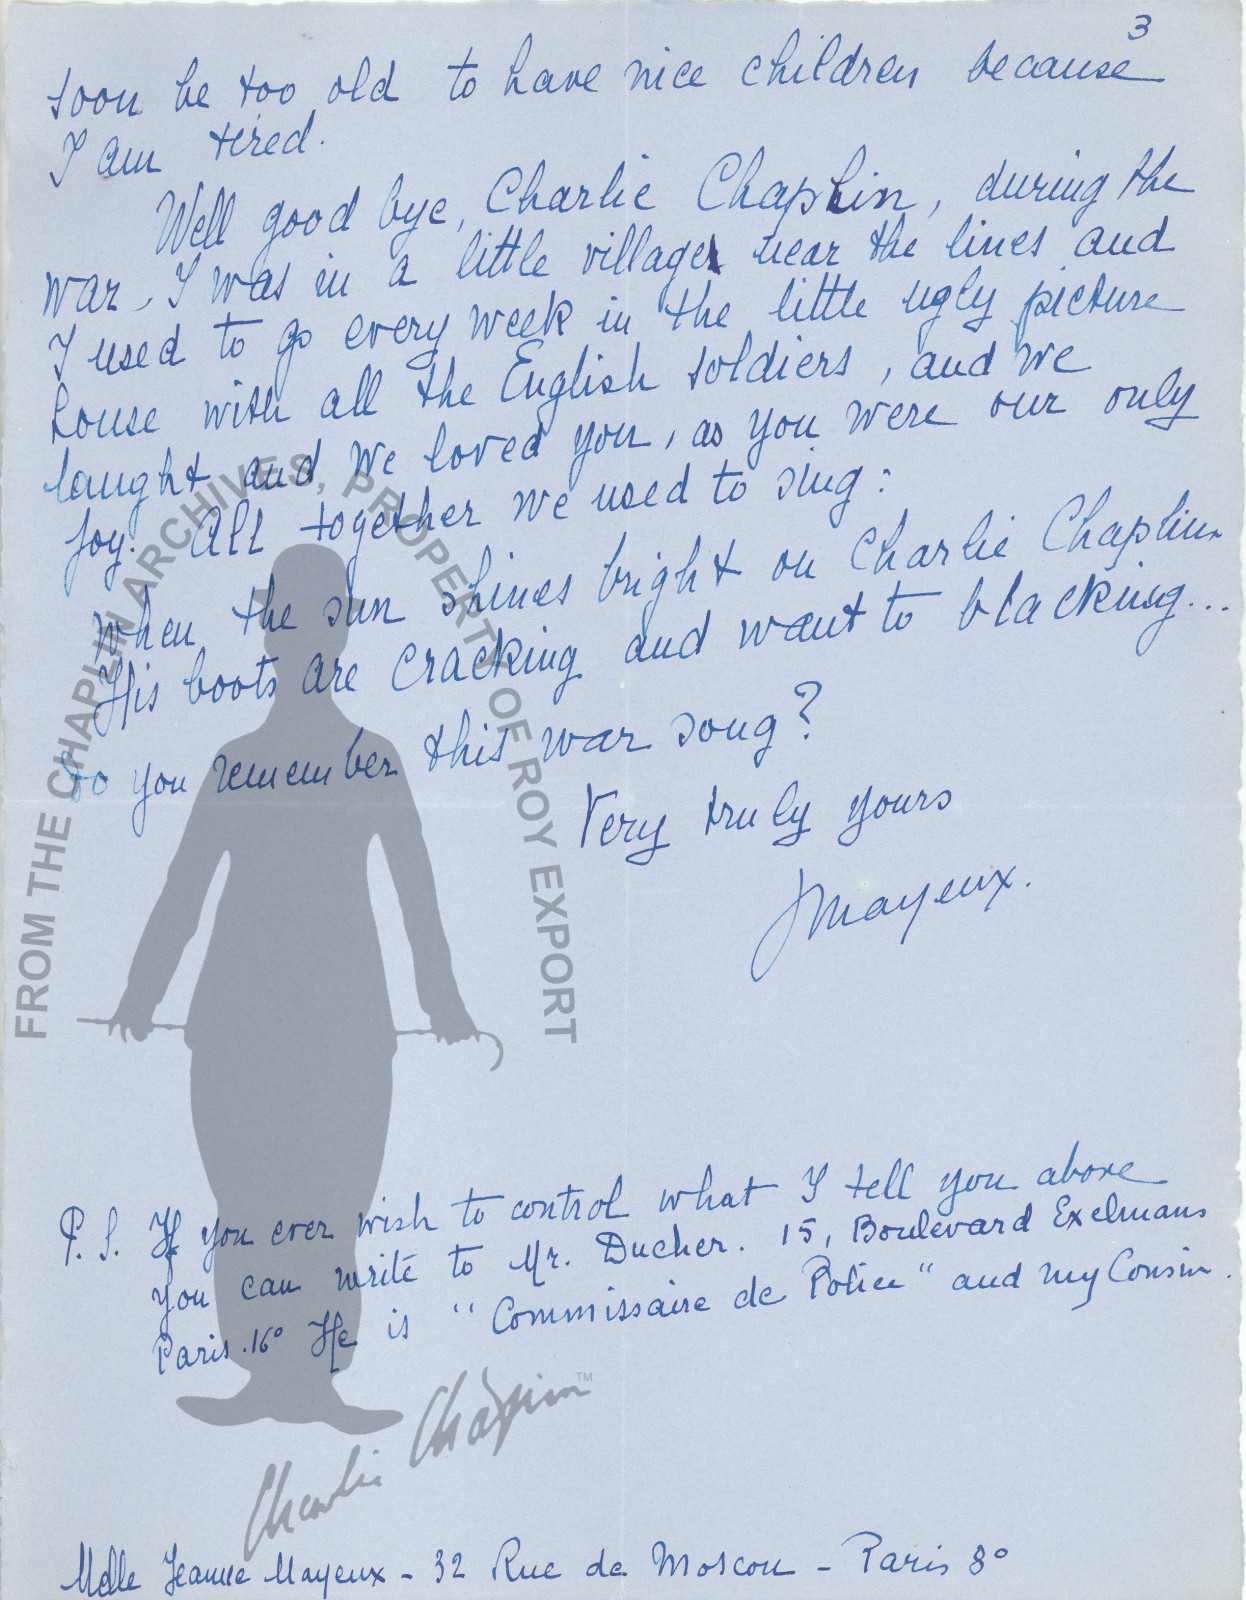 3
soon be too old to have nice children because
I am tired.
Well good bye, Charlie Chaplin, during the
war, I was in a little village near the lines and
I used to go every week in the little ugly picture
house with all the English soldiers, and we
laught and we loved you, as you were our only
joy. All together we used to sing:
When the sun shines bright on Charlie Chaplin
His boots are cracking and want to blacking...
do you remember this war song?
Very truly yours
JMayeux.
P.S. If you ever wish to control what I tell you above
you can write to Mr. Ducher. 15, Boulevard Exelmans
Paris. 16º He is "Commissaire de Police" and my Cousin.
Melle Jeanne Mayeux - 32 Rue de Moscou - Paris 8º
FROM THE CHAPLIN ARCHIVES, PROPERTY OF ROY EXPORT
Charlie Chaplin™